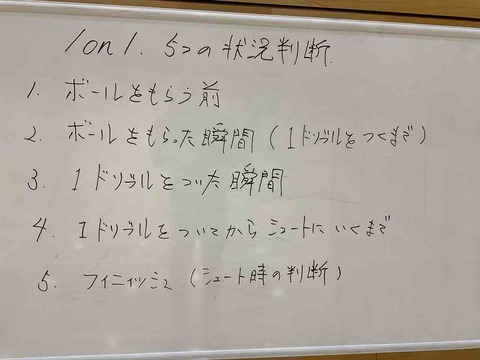 1on1. 5つの状況判断.
1. ボールをもらう前
2. ボールをもらった瞬間(1ドリブルをつくまで)
3. 1ドリブルをついた瞬間
4. 1ドリブルをついてからシュートにいくまで
5. フィニッシュ(シュート時の判断)